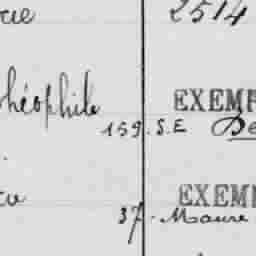 2514
héophile
EXEM
159. S.E De
EXEM
37. Maure